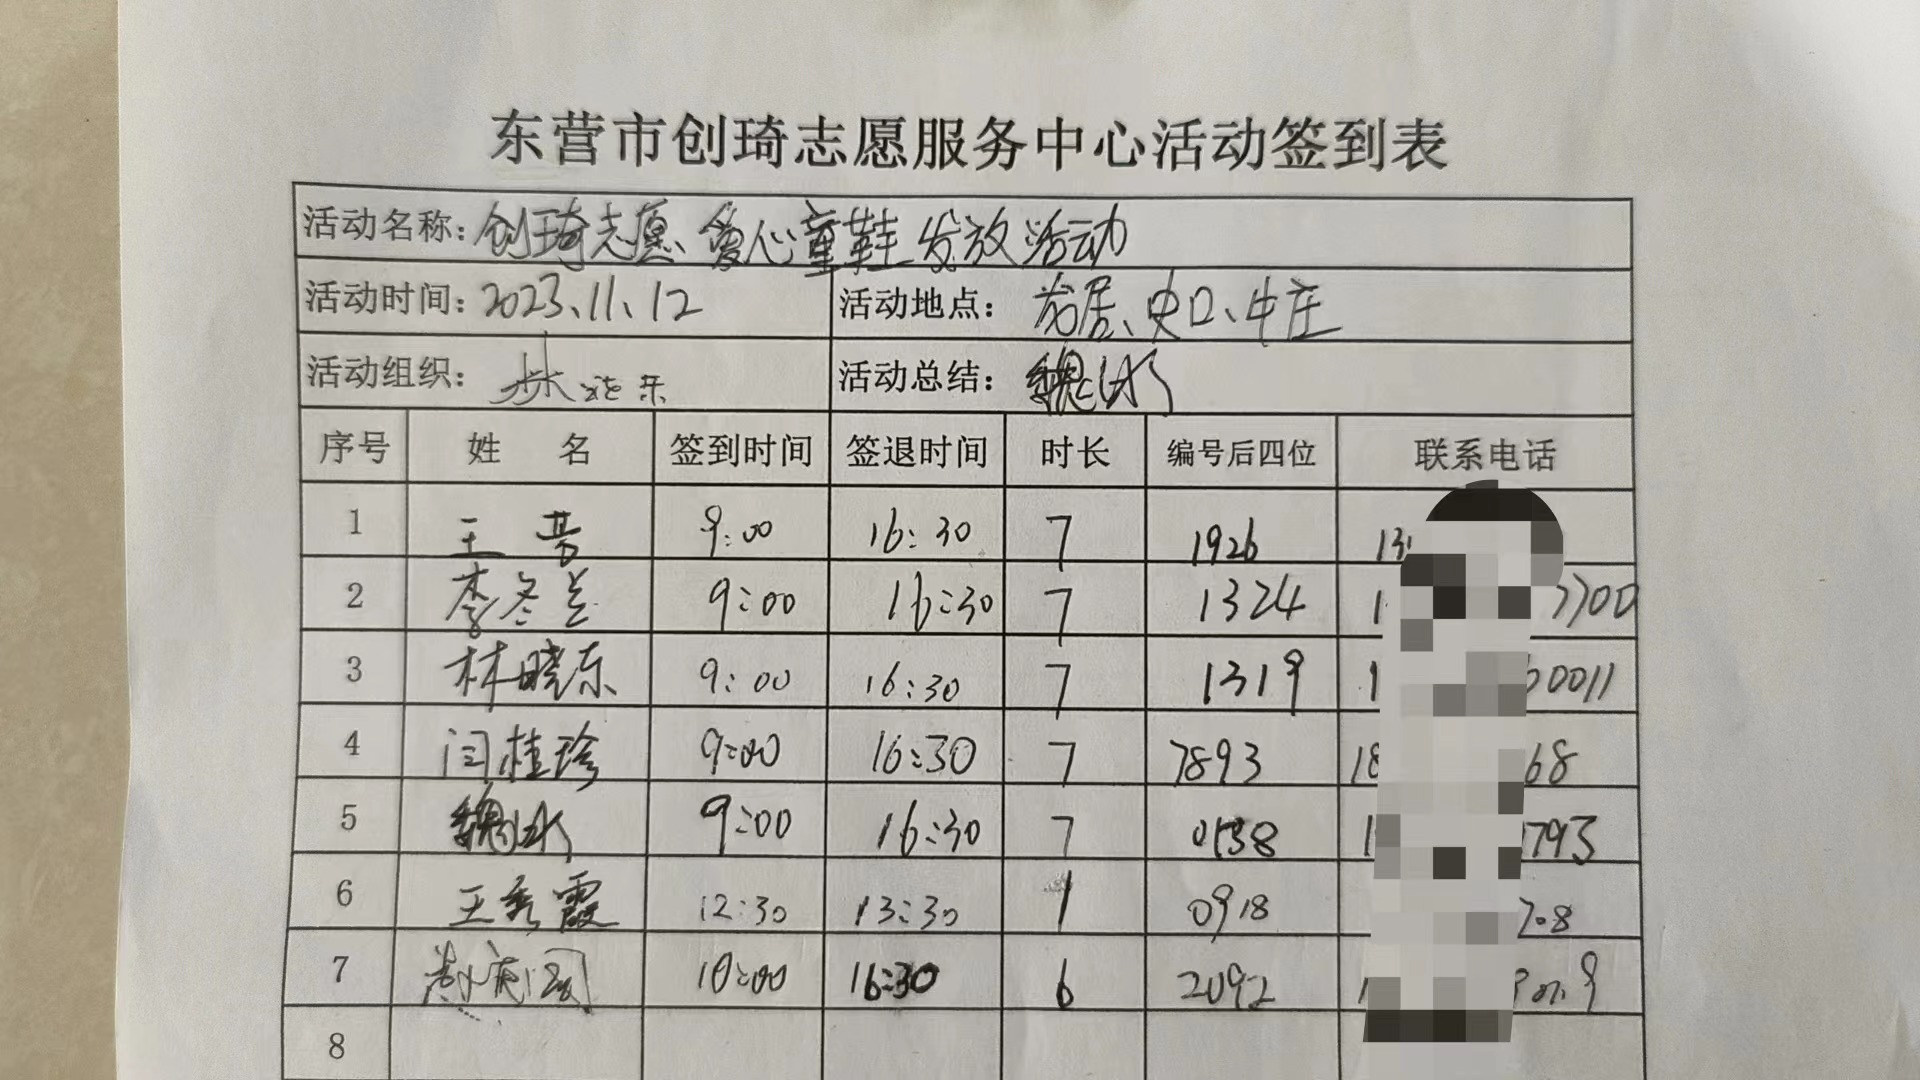 东营市创琦志愿服务中心活动签到表
活动名称：创琦志愿、爱心童鞋发放活动
活动时间：2023.11.12 活动地点：龙居、史口、牛庄
活动组织：林晓东 活动总结：魏冰
序号 姓 名 签到时间 签退时间 时长 编号后四位 联系电话
1 王 9:00 16:30 7 1926 13
2 李冬兰 9:00 16:30 7 1324 1 7700
3 林晓东 9:00 16:30 7 1319 1 60011
4 闫桂珍 9:00 16:30 7 7893 18 68
5 魏冰 9:00 16:30 7 0138 1 793
6 王秀霞 12:30 13:30 1 0918
7 10:00 16:30 6 2092
8